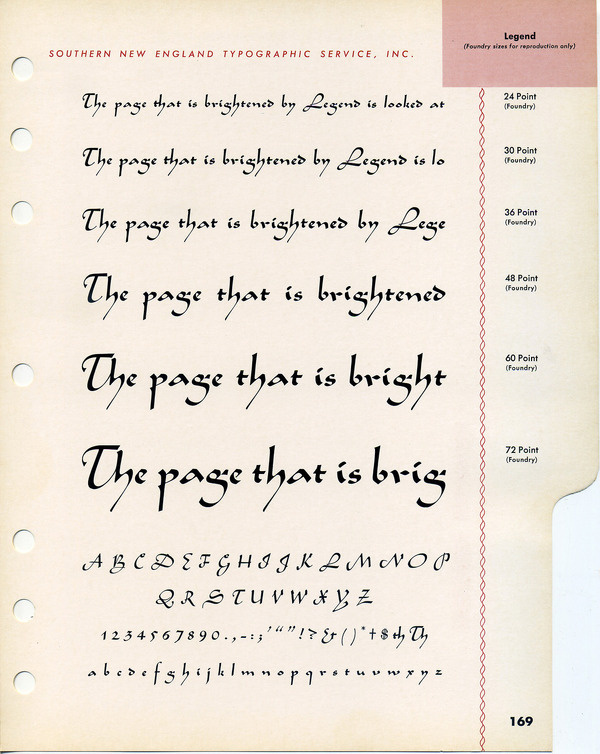 Legend
(Foundry sizes for reproduction only)
SOUTHERN NEW ENGLAND TYPOGRAPHIC SERVICE, INC.
The page that is brightened by Legend is looked at
24 Point
(Foundry)
The page that is brightened by Legend is lo
30 Point
(Foundry)
The page that is brightened by Lege
36 Point
(Foundry)
The page that is brightened
48 Point
(Foundry)
The page that is bright
60 Point
(Foundry)
The page that is brig
72 Point
(Foundry)
A B C D E F G H I J K L M N O P
Q R S T U V W X Y Z
1 2 3 4 5 6 7 8 9 0 . , - : ; ' “ ” ! ? & ( ) * † $ th Th
a b c d e f g h i j k l m n o p q r s t u v w x y z
169